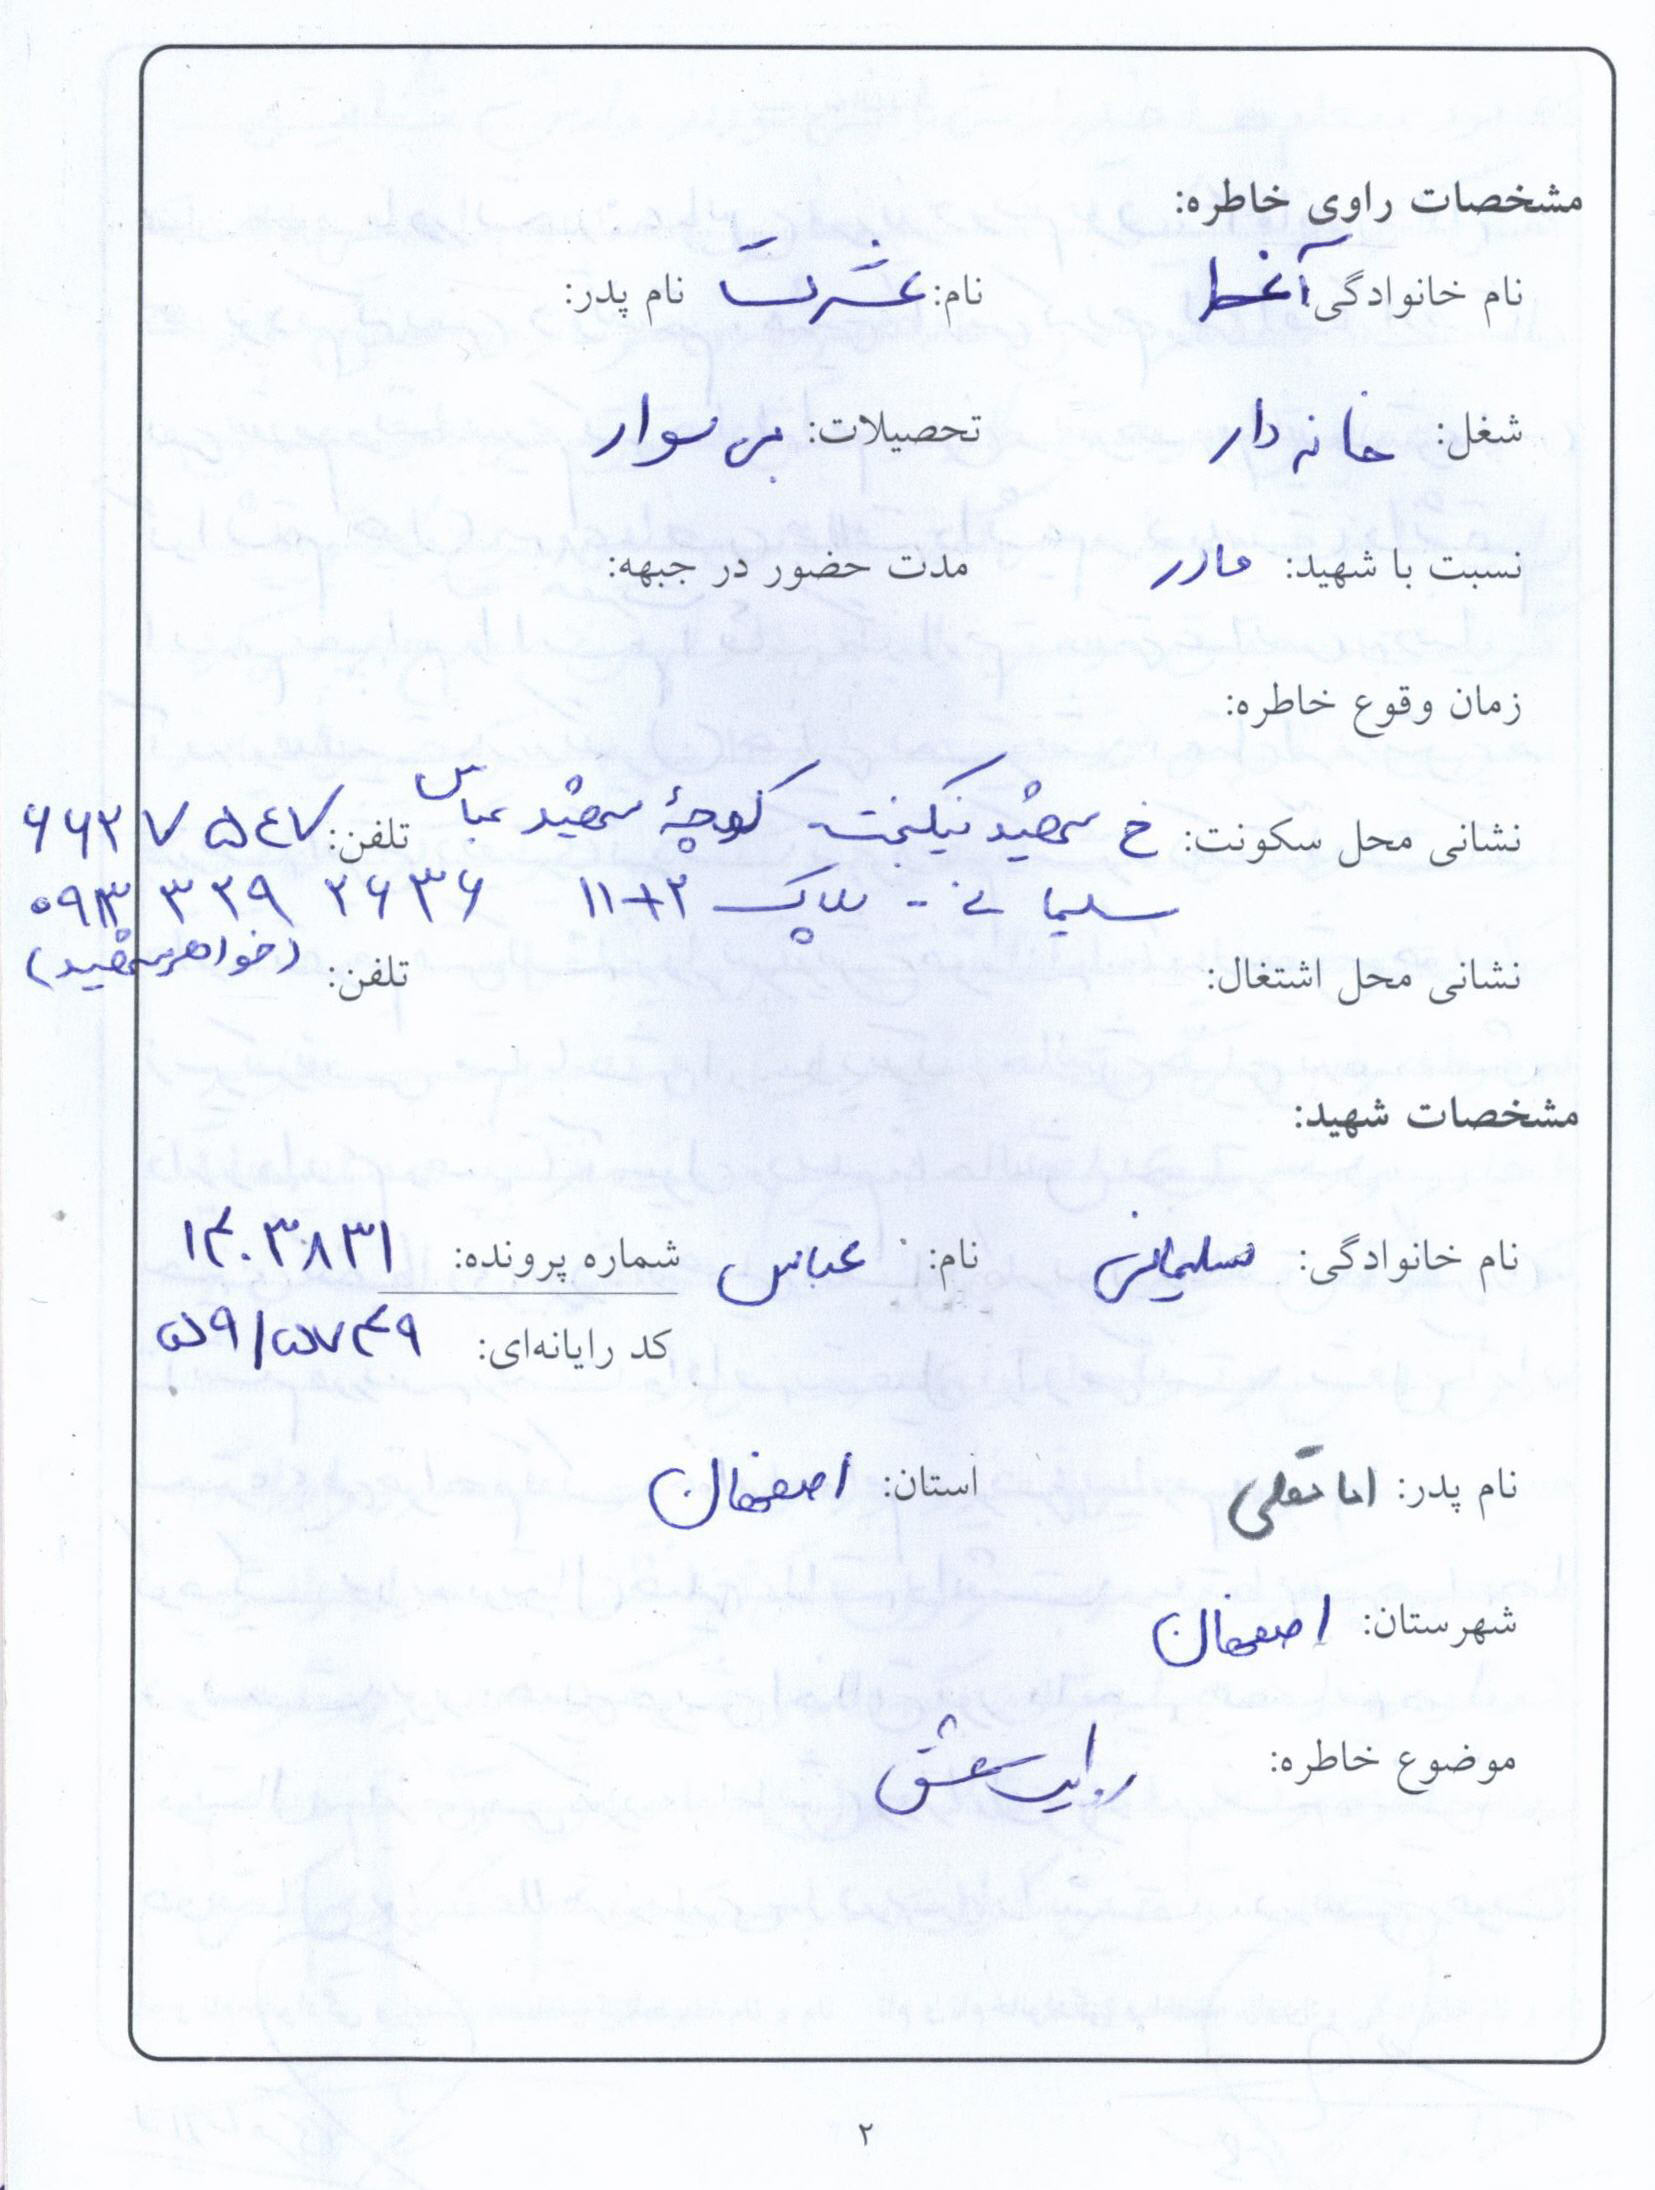 مشخصات راوی خاطره:
نام خانوادگی: نام: عشرت نام پدر:
شغل: خانه دار تحصیلات: بی سواد
نسبت با شهید: مادر مدت حضور در جبهه:
زمان وقوع خاطره:
نشانی محل سکونت: خ شهید نیکبخت - کوچهٔ شهید عباس تلفن: ۶۶۲۷۵۴۷
سلیمانی - پلاک ۱۱+۲ ۰۹۱۳ ۳۲۹ ۲۶۳۶
نشانی محل اشتغال: تلفن: (خواهر شهید)
مشخصات شهید:
نام خانوادگی: سلیمانی نام: عباس شماره پرونده: ۱۴۰۳۸۳۱
کد رایانه‌ای: ۵۹/۵۷۴۹
نام پدر: امامقلی استان: اصفهان
شهرستان: اصفهان
موضوع خاطره: روایت عشق
۲